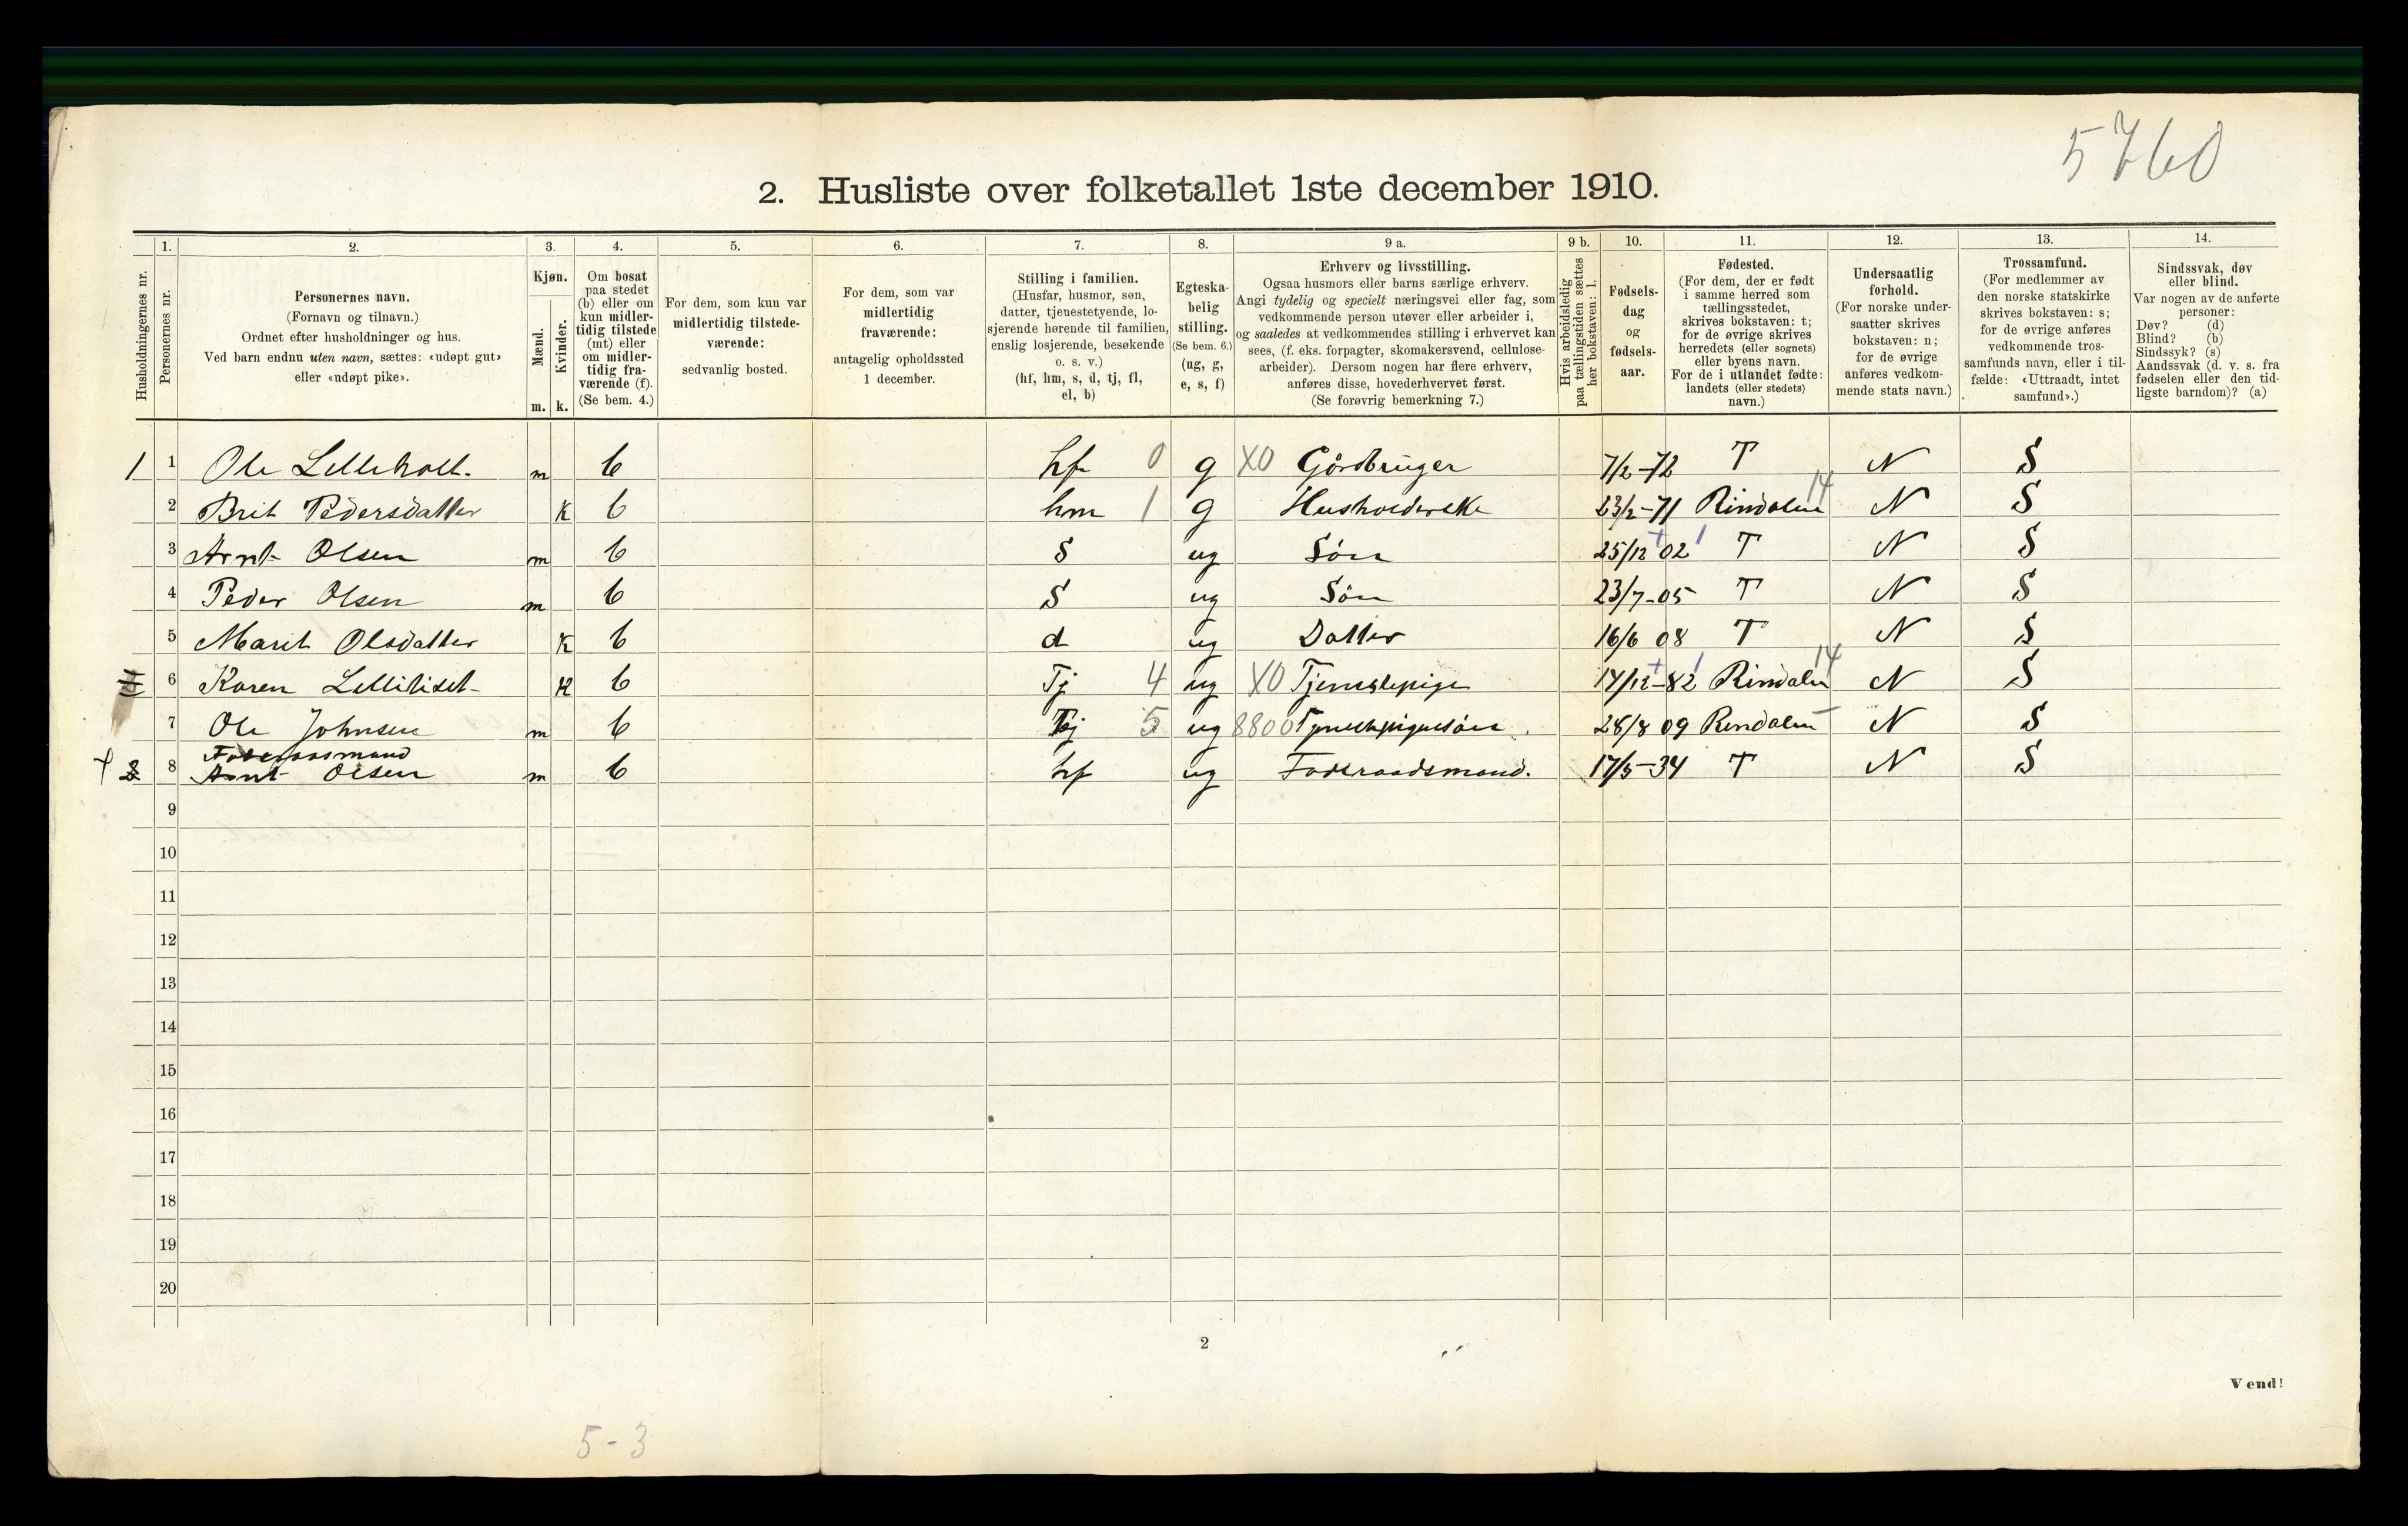 5760
2. Husliste over folketallet 1ste december 1910.
Husholdningernes nr.
1.
Personernes nr.
2.
Personernes navn.
(Fornavn og tilnavn.)
Ordnet efter husholdninger og hus.
Ved barn endnu uten navn, sættes: «udøpt gut»
eller «udøpt pike».
3.
Kjøn.
Mænd.
Kvinder.
m. k.
4.
Om bosat
paa stedet
(b) eller om
kun midler-
tidig tilstede
(mt) eller
om midler-
tidig fra-
værende (f).
(Se bem. 4.)
5.
For dem, som kun var
midlertidig tilstede-
værende:
sedvanlig bosted.
6.
For dem, som var
midlertidig
fraværende:
antagelig opholdssted
1 december.
7.
Stilling i familien.
(Husfar, husmor, søn,
datter, tjenestetyende, lo-
sjerende hørende til familien,
enslig losjerende, besøkende
o. s. v.)
(hf, hm, s, d, tj, fl,
el, b)
8.
Egteska-
belig
stilling.
(Se bem. 6.)
(ug, g,
e, s, f)
9 a.
Erhverv og livsstilling.
Ogsaa husmors eller barns særlige erhverv.
Angi tydelig og specielt næringsvei eller fag, som
vedkommende person utøver eller arbeider i,
og saaledes at vedkommendes stilling i erhvervet kan
sees, (f. eks. forpagter, skomakersvend, cellulose-
arbeider). Dersom nogen har flere erhverv,
anføres disse, hovederhvervet først.
(Se forøvrig bemerkning 7.)
9 b.
Hvis arbeidsledig
paa tællingstiden sættes
her bokstaven: l.
10.
Fødsels-
dag
og
fødsels-
aar.
11.
Fødested.
(For dem, der er født
i samme herred som
tællingsstedet,
skrives bokstaven: t;
for de øvrige skrives
herredets (eller sognets)
eller byens navn.
For de i utlandet fødte:
landets (eller stedets)
navn.)
12.
Undersaatlig
forhold.
(For norske under-
saatter skrives
bokstaven: n;
for de øvrige
anføres vedkom-
mende stats navn.)
13.
Trossamfund.
(For medlemmer av
den norske statskirke
skrives bokstaven: s;
for de øvrige anføres
vedkommende tros-
samfunds navn, eller i til-
fælde: «Uttraadt, intet
samfund».)
14.
Sindssvak, døv
eller blind.
Var nogen av de anførte
personer:
Døv? (d)
Blind? (b)
Sindssyk? (s)
Aandssvak (d. v. s. fra
fødselen eller den tid-
ligste barndom)? (a)
1 1 Ole Lilleholt. m b hf 0 g XO Gårdbruger 7/2-72 T N S
2 Brit Pedersdatter k b hm 1 g 23/2-71 Rindalen 14 N S
3 Arnt Olsen m b S ug Sön 25/12 02 T N S
4 Peder Olsen m b S ug Sön 23/7-05 T N S
5 Marit Olsdatter k b d ug Datter 16/6 08 T N S
6 Karen k b Tj 4 ug XO Tjenstepige 14/12-82 Rindalen 14 N S
7 Ole Johnsen m b Tj 5 ug 8800 28/8 09 Rindalen N S
Foderaasmand
2 8 Arnt Olsen m b hf ug Foderaadsmand. 17/5-34 T N S
9
10
11
12
13
14
15
16
17
18
19
20
2
Vend!
5-3